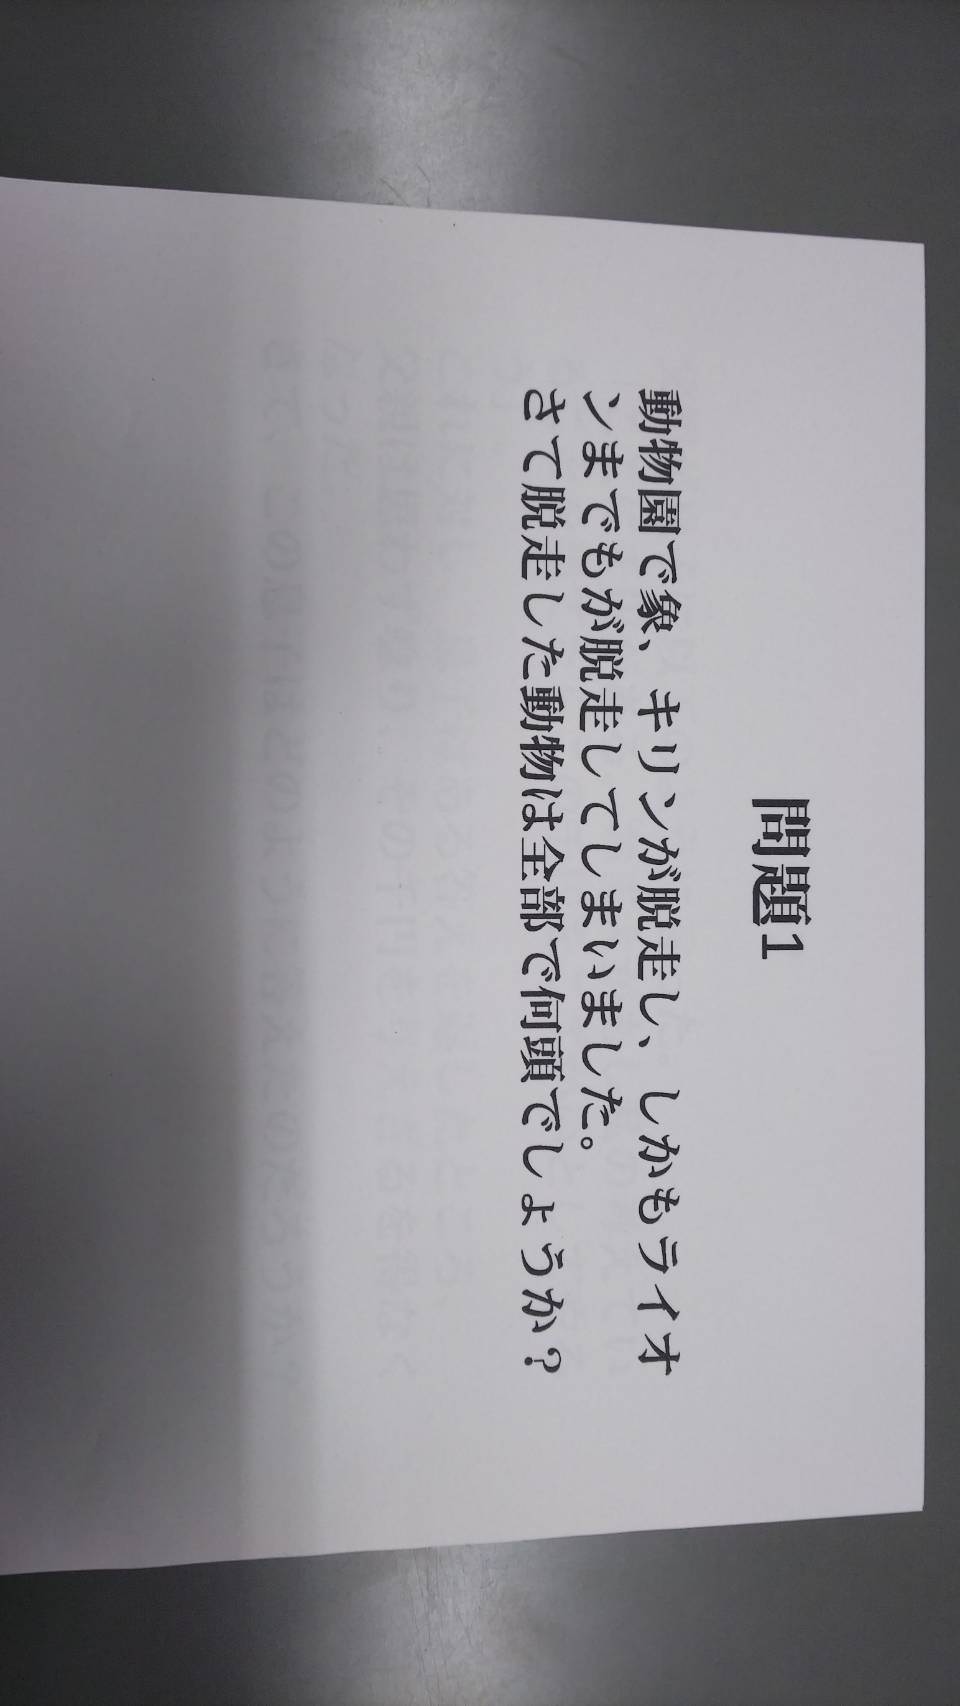 問題1
動物園で象、キリンが脱走し、しかもライオ
ンまでもが脱走してしまいました。
さて脱走した動物は全部で何頭でしょうか？